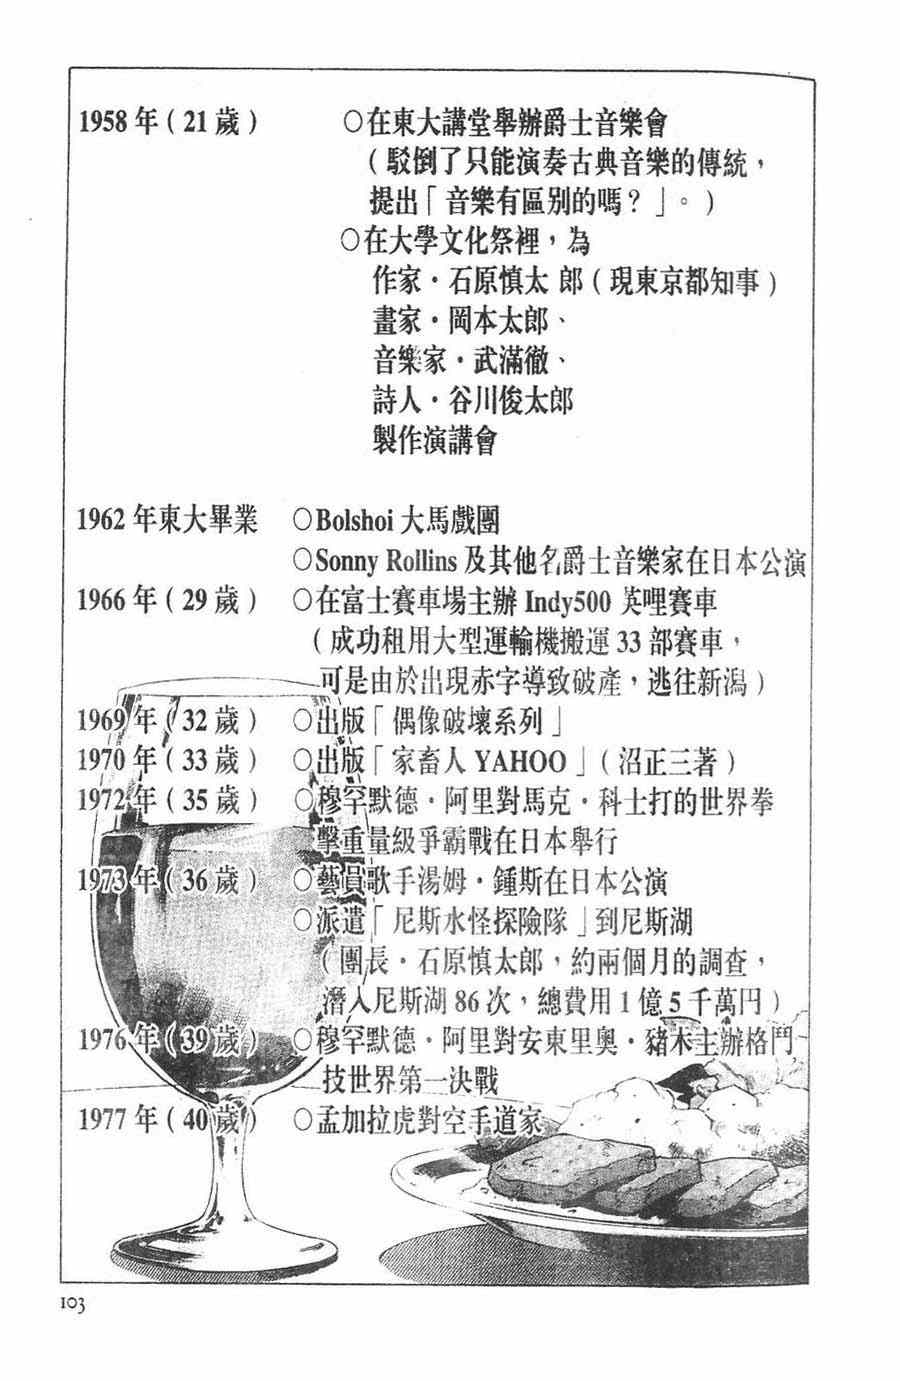 1958年(21歲) ○在東大講堂舉辦爵士音樂會
(駁倒了只能演奏古典音樂的傳統,
提出「音樂有區別的嗎?」。)
○在大學文化祭裡,為
作家・石原慎太 郎(現東京都知事)
畫家・岡本太郎、
音樂家・武滿徹、
詩人・谷川俊太郎
製作演講會
1962年東大畢業 ○Bolshoi大馬戲團
○Sonny Rollins及其他名爵士音樂家在日本公演
1966年(29歲) ○在富士賽車場主辦Indy500 英哩賽車
(成功租用大型運輸機搬運33部賽車,
可是由於出現赤字導致破產,逃往新潟)
1969年(32歲) ○出版「偶像破壞系列」
1970年(33歲) ○出版「家畜人YAHOO」(沼正三著)
1972年(35歲) ○穆罕默德・阿里對馬克・科士打的世界拳
擊重量級爭霸戰在日本舉行
1973年(36歲) ○藝員歌手湯姆・鍾斯在日本公演
○派遣「尼斯水怪探險隊」到尼斯湖
(團長・石原慎太郎,約兩個月的調查,
潛入尼斯湖86次,總費用1億5千萬円)
1976年(39歲) ○穆罕默德・阿里對安東里奧・豬木主辦格鬥
技世界第一決戰
1977年(40歲) ○孟加拉虎對空手道家
103